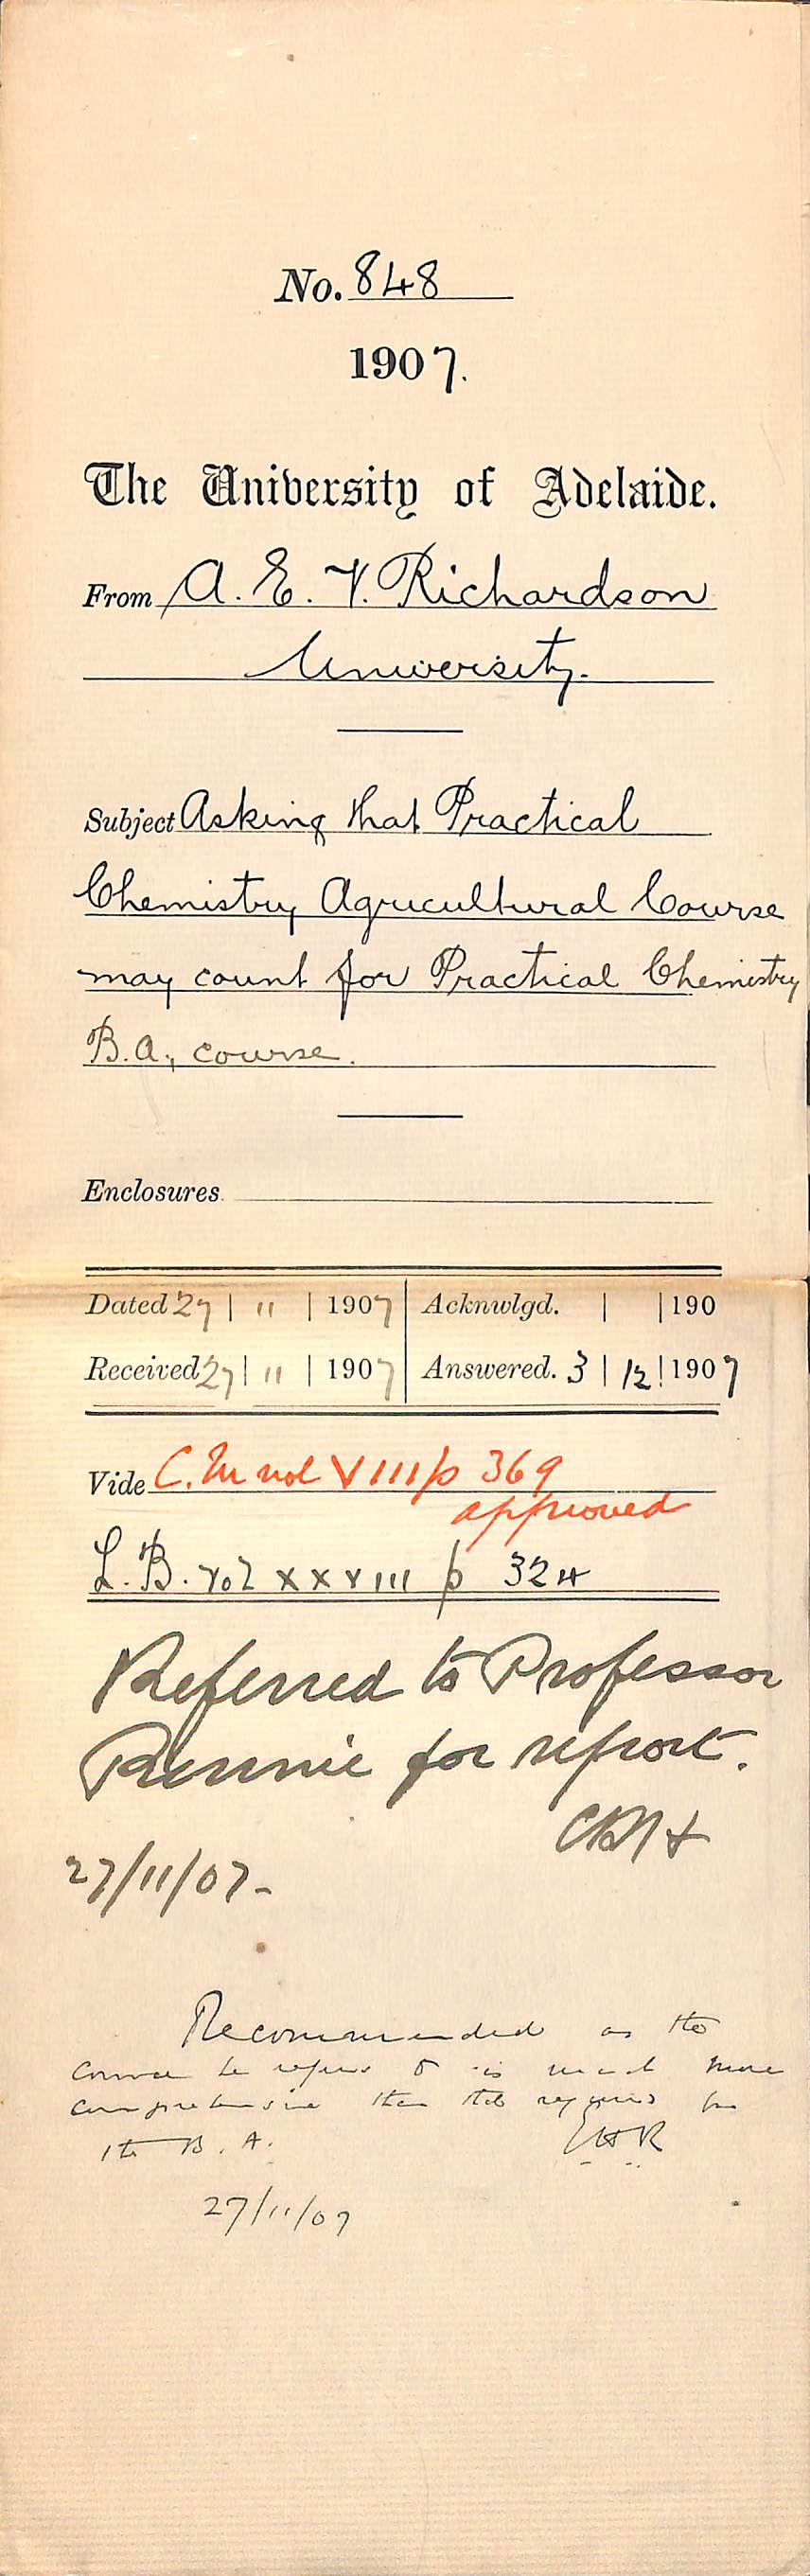 No. 848
1907.
The University of Adelaide.
From A. E. V. Richardson
University.
Subject Asking that Practical
Chemistry Agricultural Course
may count for Practical Chemistry
B.A., course.
Enclosures
Dated 27 | 11 | 1907 Acknwlgd. | | 190
Received 27 | 11 | 1907 Answered. 3 | 12 | 1907
Vide C. M vol VIII p 369
approved
L.B. vol XXVIII p 324
Referred to Professor
Rennie for report.
27/11/07-
Recommended as the
course he refers to is much more
comprehensive than that required for
the B.A.
EHR
27/11/07